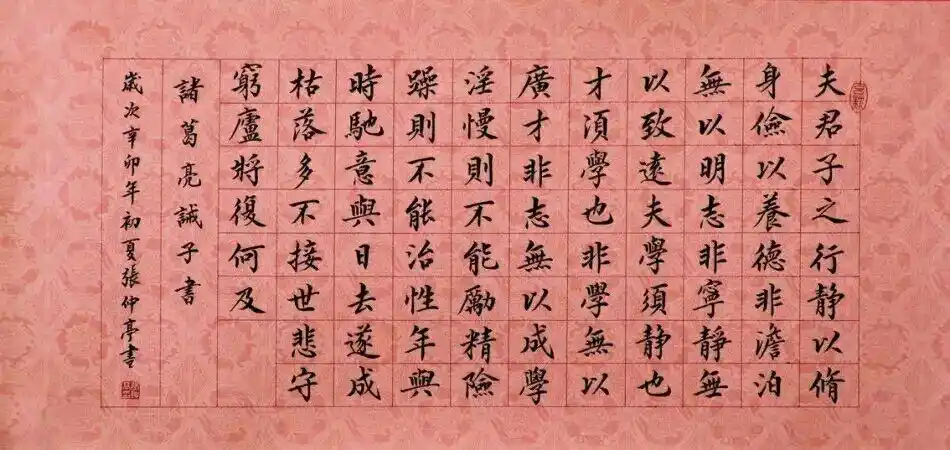 夫君子之行静以脩
身儉以養德非澹泊
無以明志非寧靜無
以致遠夫學須静也
才湏學也非學無以
廣才非志無以成學
淫慢則不能勵精險
躁則不能治性年與
時馳意與日去遂成
枯落多不接世悲守
窮廬將復何及
諸葛亮誡子書
歲次辛卯年初夏張仲亭書